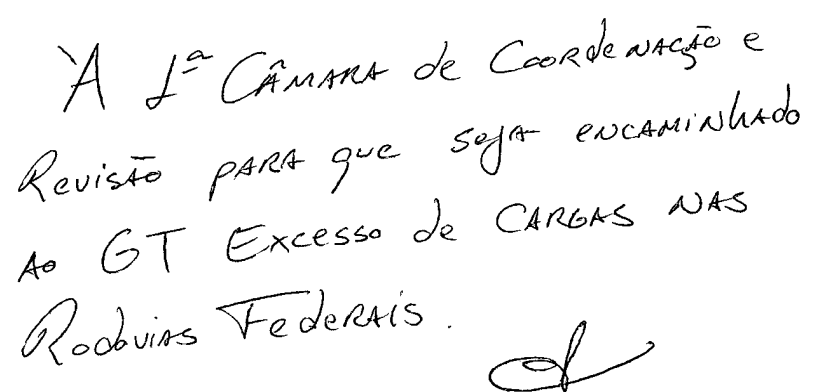 À 1ª Câmara de Coordenação e
Revisão para que seja encaminhado
ao GT Excesso de Cargas nas
Rodovias Federais.